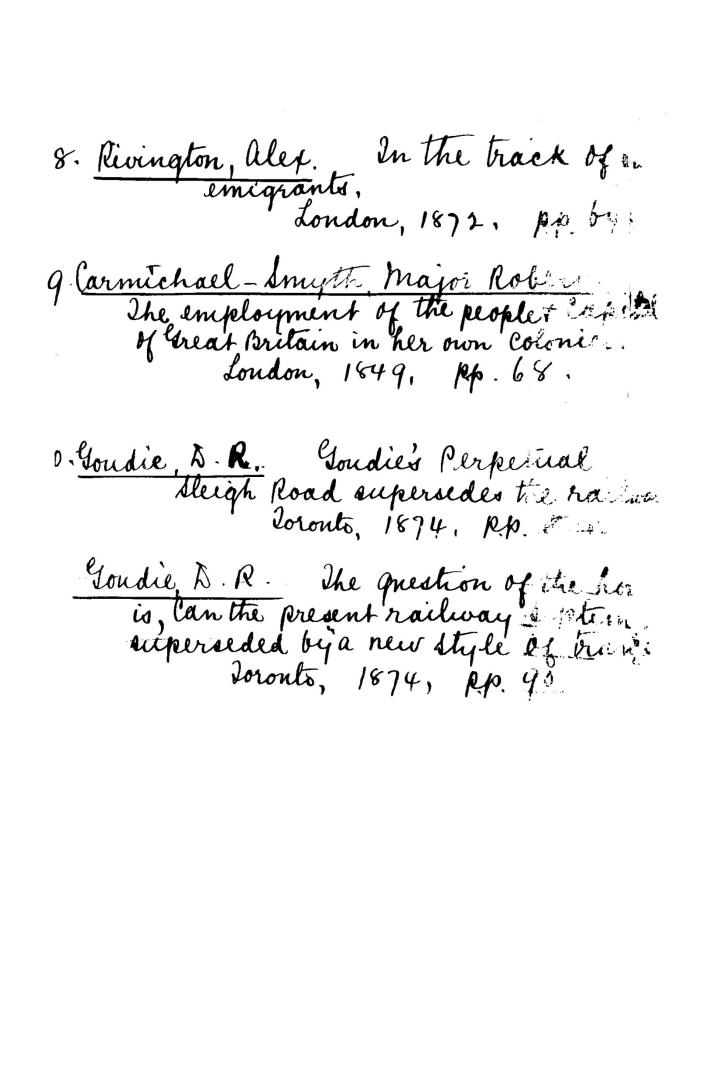 8. Rivington, Alex. In the track of
emigrants.
London, 1872. pp.
9. Carmichael-Smyth, Major
The employment of the people +
of Great Britain in her own
London, 1849. pp. 68.
0. Goudie, D. R. Goudie's Perpetual
Sleigh Road supersedes the
Toronto, 1874. pp.
Goudie, D. R. The question of the
is, Can the present railway
superseded by a new style of
Toronto, 1874, pp.